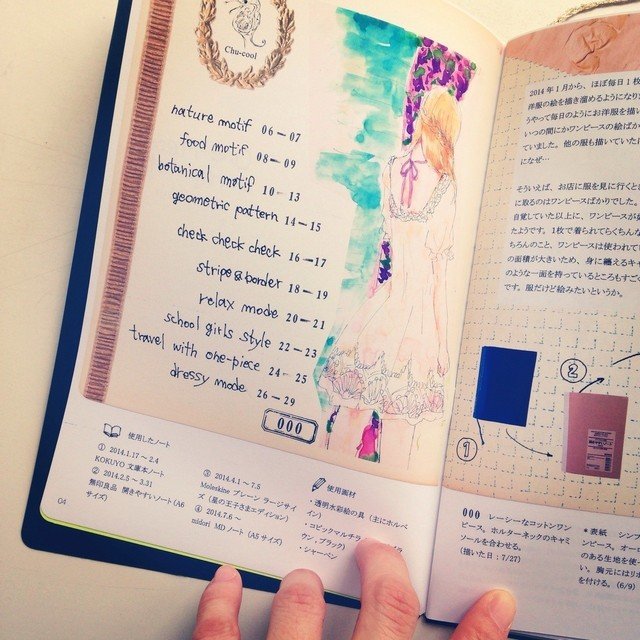 Chu-cool
nature motif 06-07
food motif 08-09
botanical motif 10-13
geometric pattern 14-15
check check check 16-17
stripe & border 18-19
relax mode 20-21
school girls style 22-23
travel with one-piece 24-25
dressy mode 26-29
000
使用したノート
① 2014.1.17～2.4
KOKUYO 文庫本ノート
② 2014.2.5～3.31
無印良品 開きやすいノート(A6
サイズ)
③ 2014.4.1～7.5
Moleskine プレーン ラージサイ
ズ(星の王子さまエディション)
④ 2014.7.6～
midori MDノート(A5サイズ)
使用画材
・透明水彩絵の具(主にホルベ
イン)
・コピックマルチラ
ウン,ブラック)
・シャーペン
04
2014年1月から、ほぼ毎日1枚
洋服の絵を描き溜めるようになり
うやって毎日のようにお洋服を描い
いつの間にかワンピースの絵ばか
ていました。他の服も描いていた
になぜ…
そういえば、お店に服を見に行くと
に取るのはワンピースばかりでした。
自覚していた以上に、ワンピースが
たようです。1枚で着られてらくちん
ちろんのこと、ワンピースは使われて
の面積が大きいため、身に纏えるキャ
のような一面を持っているところもす
です。服だけど絵みたいというか。
①
②
000 レーシーなコットンワン
ピース。ホルターネックのキャミ
ソールを合わせる。
(描いた日:7/27)
＊表紙 シンプ
ンピース。オー
のある生地を使
い。胸元にはリ
を付ける。(6/9)